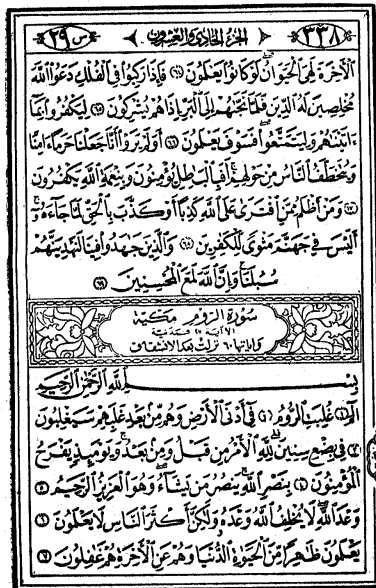 ٣٣٨ الجزء الحادى والعشرون س ٢٩
ٱلْأَخِرَةَ لَهِىَ ٱلْحَيَوَانُ لَوْ كَانُوا۟ يَعْلَمُونَ ٦٤ فَإِذَا رَكِبُوا۟ فِى ٱلْفُلْكِ دَعَوُا۟ ٱللَّهَ
مُخْلِصِينَ لَهُ ٱلدِّينَ فَلَمَّا نَجَّىٰهُمْ إِلَى ٱلْبَرِّ إِذَا هُمْ يُشْرِكُونَ ٦٥ لِيَكْفُرُوا۟ بِمَآ
ءَاتَيْنَٰهُمْ وَلِيَتَمَتَّعُوا۟ فَسَوْفَ يَعْلَمُونَ ٦٦ أَوَلَمْ يَرَوْا۟ أَنَّا جَعَلْنَا حَرَمًا ءَامِنًا
وَيُتَخَطَّفُ ٱلنَّاسُ مِنْ حَوْلِهِمْ أَفَبِٱلْبَٰطِلِ يُؤْمِنُونَ وَبِنِعْمَةِ ٱللَّهِ يَكْفُرُونَ
٦٧ وَمَنْ أَظْلَمُ مِمَّنِ ٱفْتَرَىٰ عَلَى ٱللَّهِ كَذِبًا أَوْ كَذَّبَ بِٱلْحَقِّ لَمَّا جَآءَهُۥٓ
أَلَيْسَ فِى جَهَنَّمَ مَثْوًى لِّلْكَٰفِرِينَ ٦٨ وَٱلَّذِينَ جَٰهَدُوا۟ فِينَا لَنَهْدِيَنَّهُمْ
سُبُلَنَا وَإِنَّ ٱللَّهَ لَمَعَ ٱلْمُحْسِنِينَ ٦٩
سورة الروم مكية
الا آية ١٧ فمدنية
وآياتها ٦٠ نزلت بعد الانشقاق
بِسْمِ ٱللَّهِ ٱلرَّحْمَٰنِ ٱلرَّحِيمِ
الٓمٓ ١ غُلِبَتِ ٱلرُّومُ ٢ فِىٓ أَدْنَى ٱلْأَرْضِ وَهُم مِّنۢ بَعْدِ غَلَبِهِمْ سَيَغْلِبُونَ
٣ فِى بِضْعِ سِنِينَ لِلَّهِ ٱلْأَمْرُ مِن قَبْلُ وَمِنۢ بَعْدُ وَيَوْمَئِذٍ يَفْرَحُ
ٱلْمُؤْمِنُونَ ٤ بِنَصْرِ ٱللَّهِ يَنصُرُ مَن يَشَآءُ وَهُوَ ٱلْعَزِيزُ ٱلرَّحِيمُ ٥
وَعْدَ ٱللَّهِ لَا يُخْلِفُ ٱللَّهُ وَعْدَهُۥ وَلَٰكِنَّ أَكْثَرَ ٱلنَّاسِ لَا يَعْلَمُونَ ٦
يَعْلَمُونَ ظَٰهِرًا مِّنَ ٱلْحَيَوٰةِ ٱلدُّنْيَا وَهُمْ عَنِ ٱلْأَخِرَةِ هُمْ غَٰفِلُونَ ٧